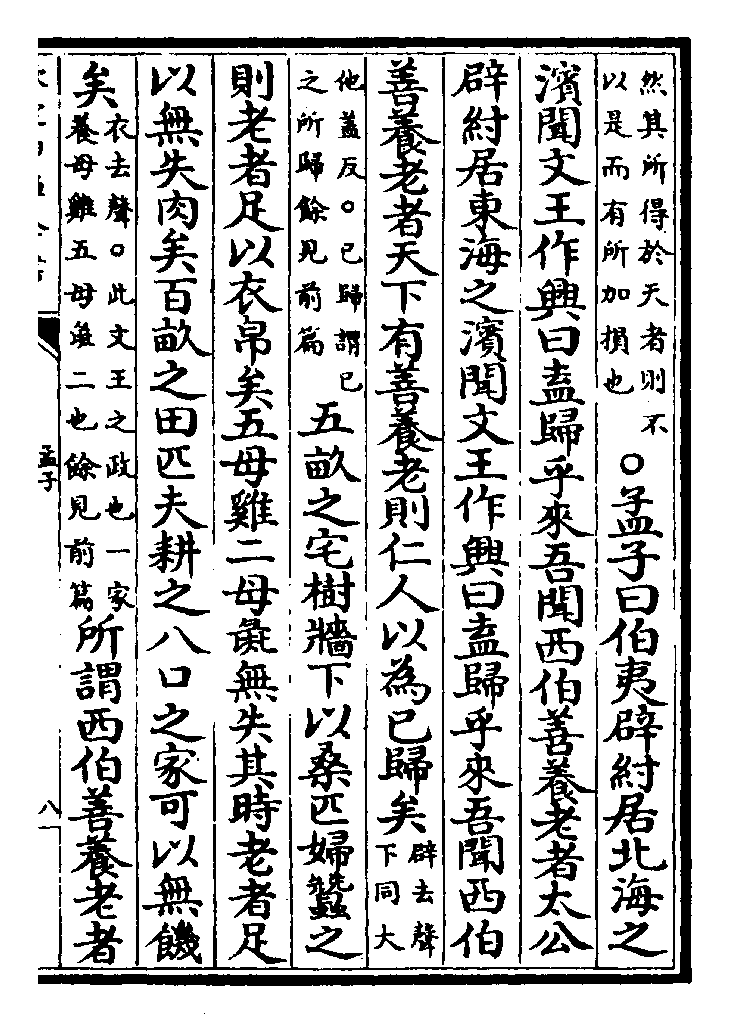 然其所得於天者則不
以是而有所加損也
○孟子曰伯夷辟紂居北海之
濱聞文王作興曰盍歸乎來吾聞西伯善養老者太公
辟紂居東海之濱聞文王作興曰盍歸乎來吾聞西伯
善養老者天下有善養老則仁人以為已歸矣
辟去聲
下同大
他蓋反○已歸謂已
之所歸餘見前篇
五畝之宅樹牆下以桑匹婦蠶之
則老者足以衣帛矣五母雞二母彘無失其時老者足
以無失肉矣百畝之田匹夫耕之八口之家可以無饑
矣
衣去聲○此文王之政也一家
養母雞五母彘二也餘見前篇
所謂西伯善養老者
孟子
八